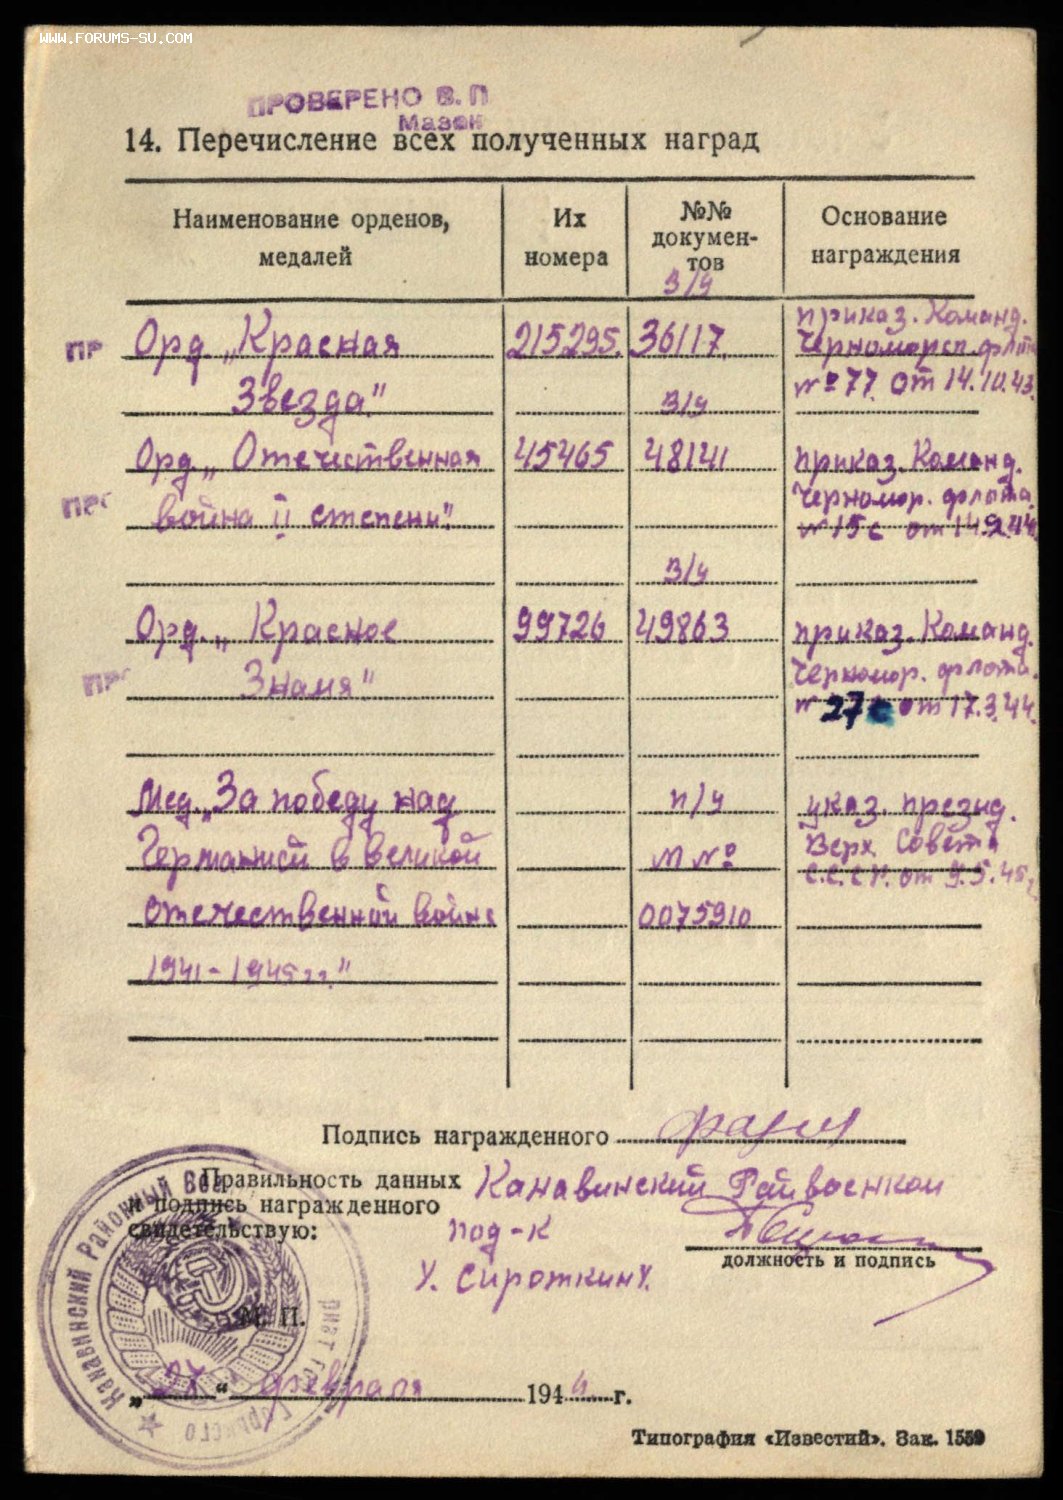 WWW.FORUMS-SU.COM
ПРОВЕРЕНО В. П
Мазен
14. Перечисление всех полученных наград
Наименование орденов, медалей
Их номера
№№ докумен-тов
Основание награждения
в/у
пр Орд. „Красная 215295. 36117. приказ. Команд.
Черноморск. флота
Звезда." № 77. от 14.10.43.
в/у
Орд „ Отечественная 45465 48141 приказ. Команд.
Черномор. флота
война II степени". № 15с от 14.2.44.
в/у
Орд. „ Красное 99726 49863 приказ. Команд.
Черномор. флота.
Знамя" № 27с от 17.3.44.
Мед. „За победу над п/у указ. презид.
Верх Совета
Германией в великой м №
С.С.С.Р. от 9.5.45г
отечественной войне 0075910
1941-1945гг."
Подпись награжденного
Правильность данных
и подпись награжденного
свидетельствую:
Канавинский Райвоенком
под-к
У. Сироткин У.
должность и подпись
М. П.
Канавинский Районный Вое
риат г.
Горького
„27" февраля 194 г.
Типография «Известий». Зак. 1559